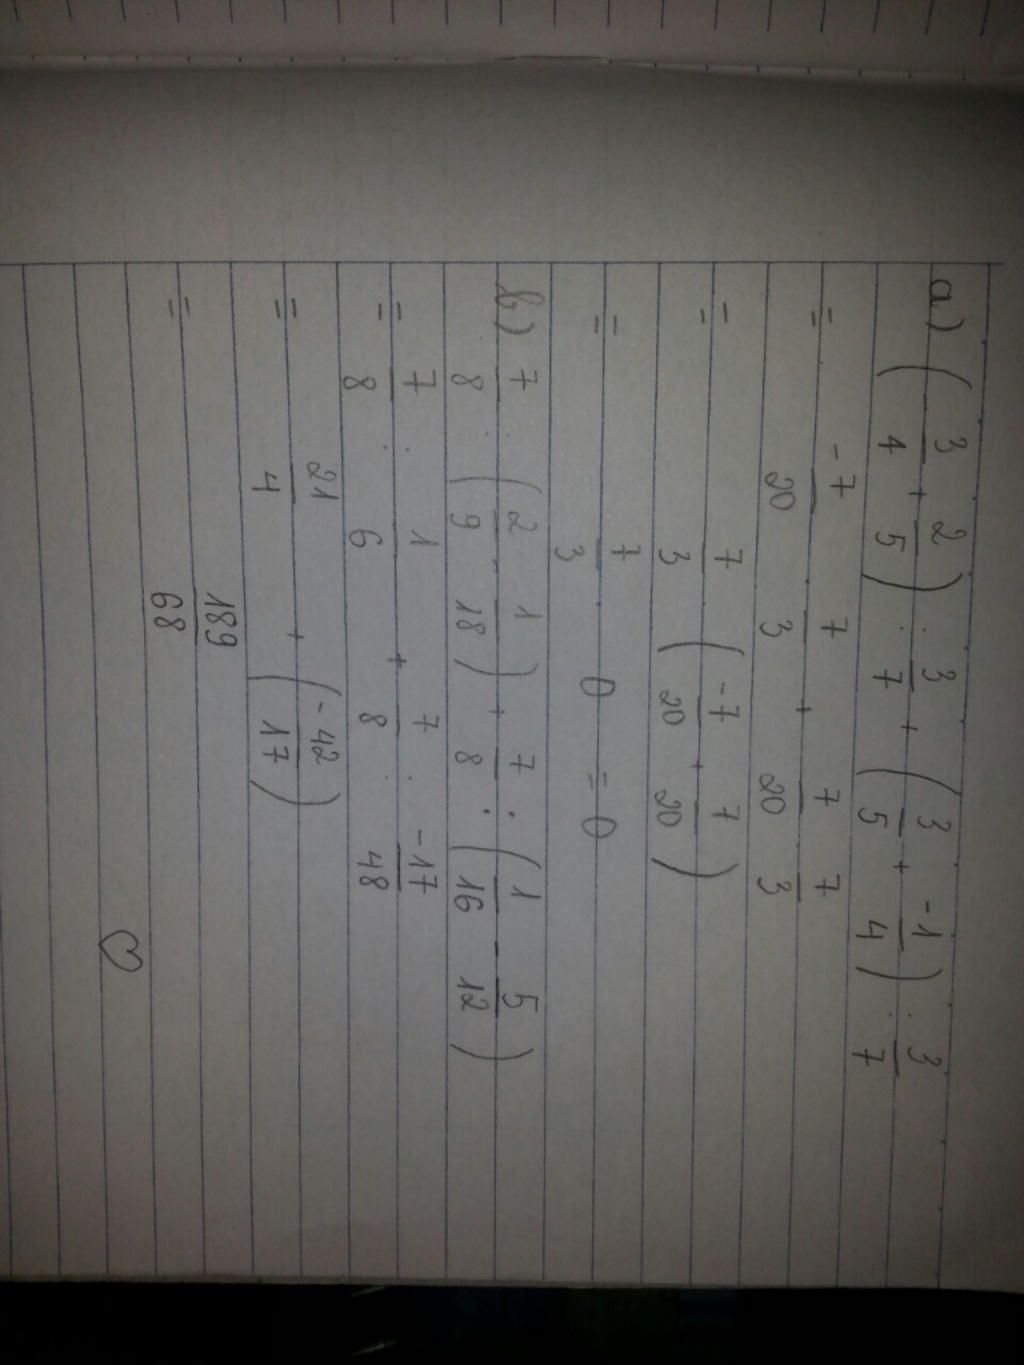 a) (3/4 + 2/5) : 3/7 + (3/5 + -1/4) : 3/7
= -7/20 . 7/3 + 7/20 . 7/3
= 7/3 (-7/20 + 7/20)
= 7/3 . 0 = 0
b) 7/8 : (2/9 - 1/18) + 7/8 : (1/16 - 5/12)
= 7/8 : 1/6 + 7/8 : -17/48
= 21/4 + (-42/17)
= 189/68